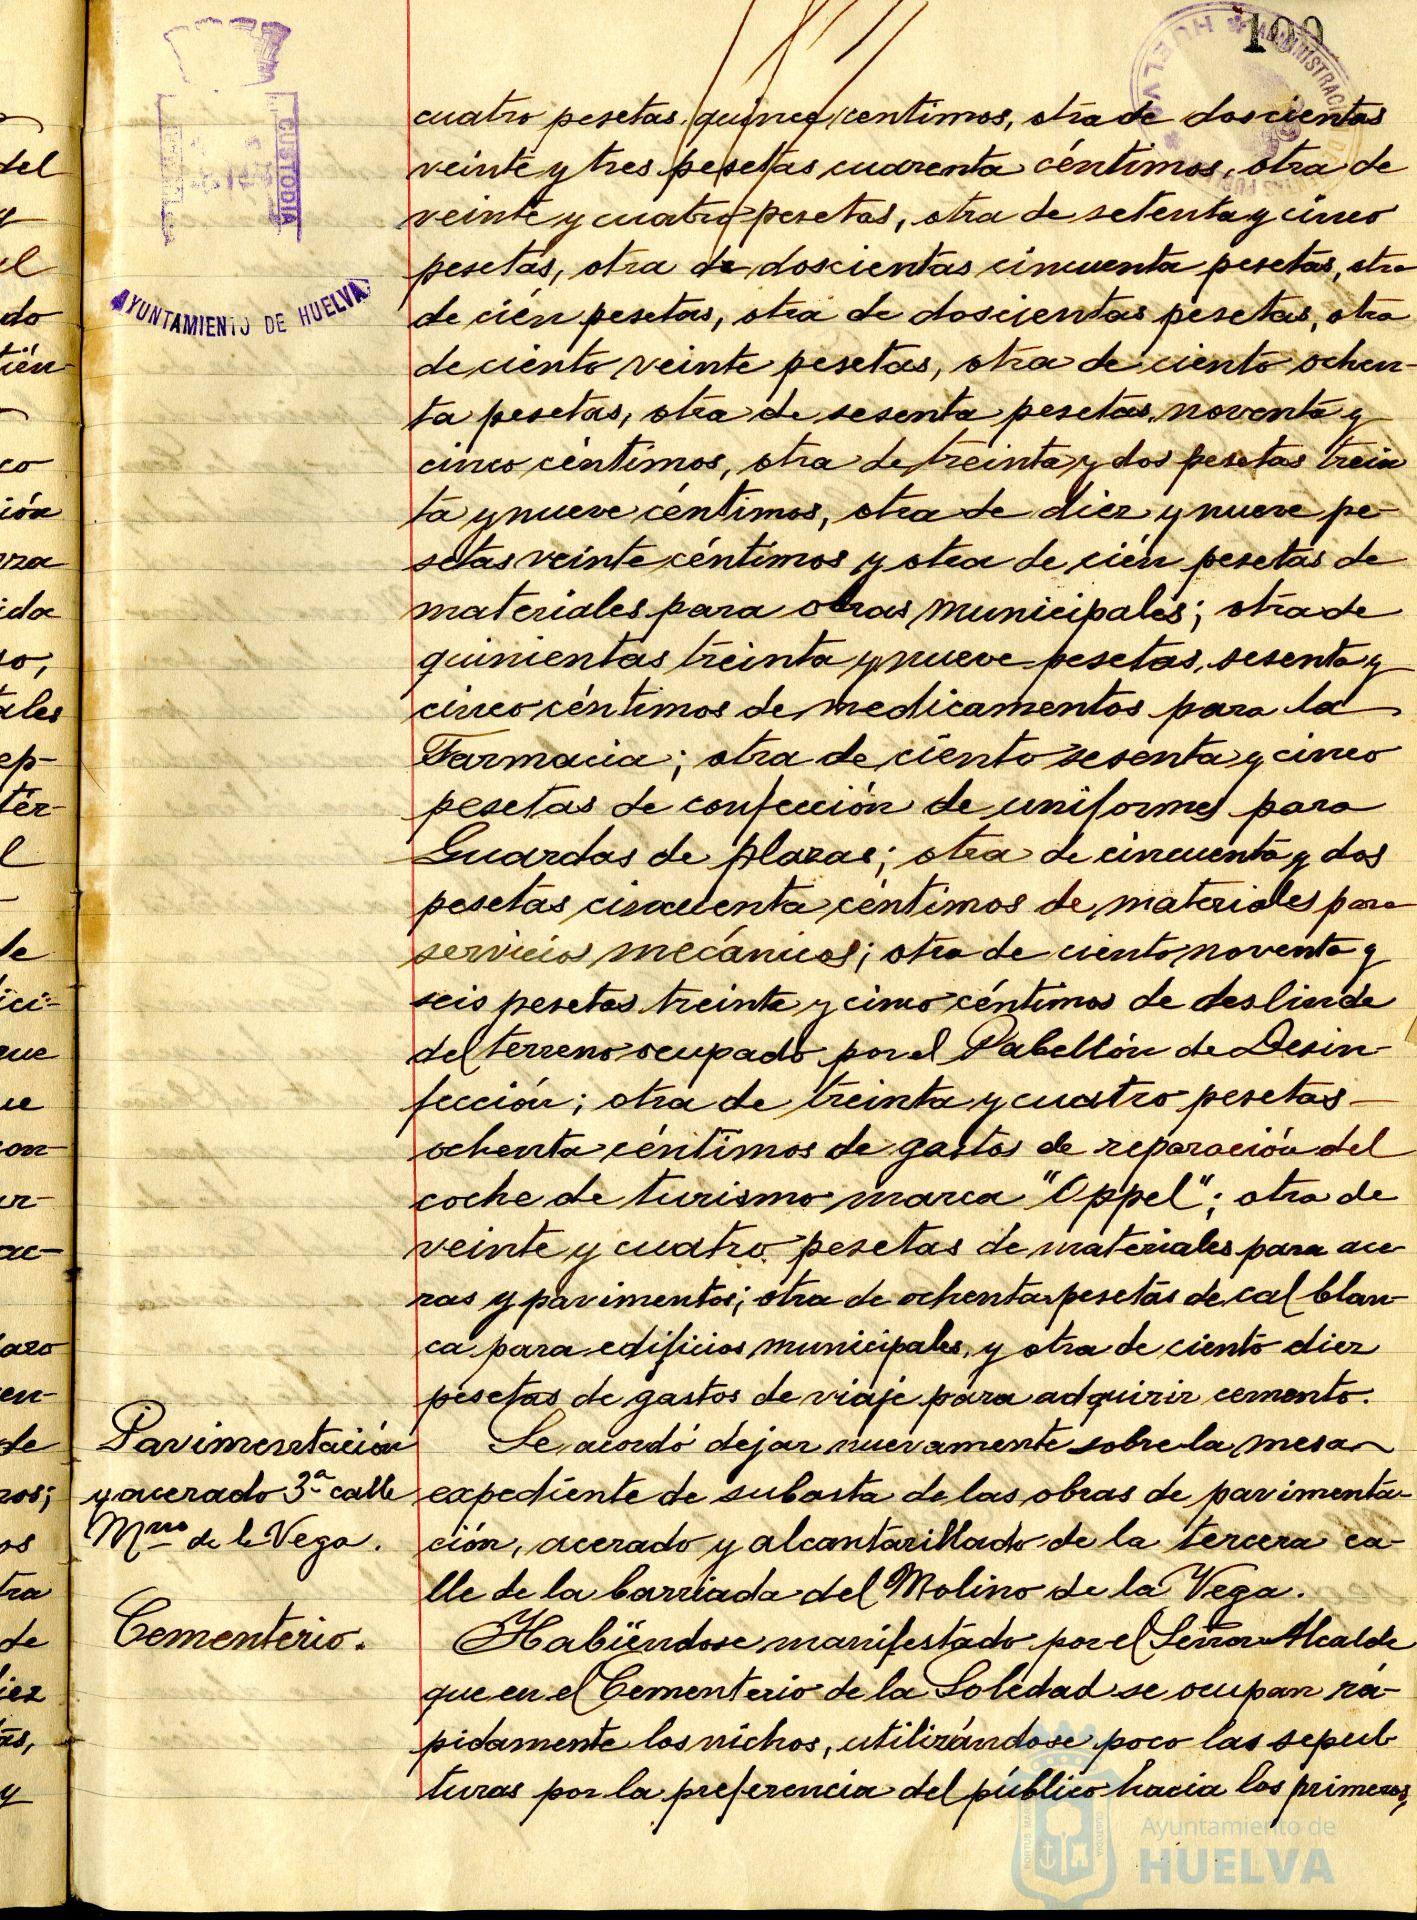 100
CUSTODIA
AYUNTAMIENTO DE HUELVA
HUELVA
cuatro pesetas quince centimos, otra de doscientas
veinte y tres pesetas cuarenta céntimos, otra de
veinte y cuatro pesetas, otra de setenta y cinco
pesetas, otra de doscientas cincuenta pesetas, otra
de cién pesetas, otra de doscientas pesetas, otra
de ciento veinte pesetas, otra de ciento ochen-
ta pesetas, otra de sesenta pesetas noventa y
cinco céntimos, otra de treinta y dos pesetas trein
ta y nueve céntimos, otra de diez y nueve pe-
setas veinte céntimos y otra de cién pesetas de
materiales para obras municipales; otra de
quinientas treinta y nueve pesetas, sesenta y
cinco céntimos de medicamentos para la
Farmacia; otra de ciento sesenta y cinco
pesetas de confección de uniformes para
Guardas de plazas; otra de cincuenta y dos
pesetas cincuenta céntimos de materiales para
servicios mecánicos; otra de ciento noventa y
seis pesetas treinta y cinco céntimos de deslinde
del terreno ocupado por el Pabellón de Desin-
fección; otra de treinta y cuatro pesetas
ochenta céntimos de gastos de reparación del
coche de turismo marca "Oppel"; otra de
veinte y cuatro pesetas de materiales para ace-
ras y pavimentos; otra de ochenta pesetas de cal blan-
ca para edificios municipales, y otra de ciento diez
pesetas de gastos de viaje para adquirir cemento.
Pavimentación
y acerado 3ª calle
Mno de la Vega.
Se acordó dejar nuevamente sobre la mesa
expediente de subasta de las obras de pavimenta-
ción, acerado y alcantarillado de la tercera ca-
lle de la barriada del Molino de la Vega.
Cementerio.
Habiéndose manifestado por el Señor Alcalde
que en el Cementerio de la Soledad se ocupan rá-
pidamente los nichos, utilizándose poco las sepul-
turas por la preferencia del público hacia los primeros,
Ayuntamiento de
HUELVA